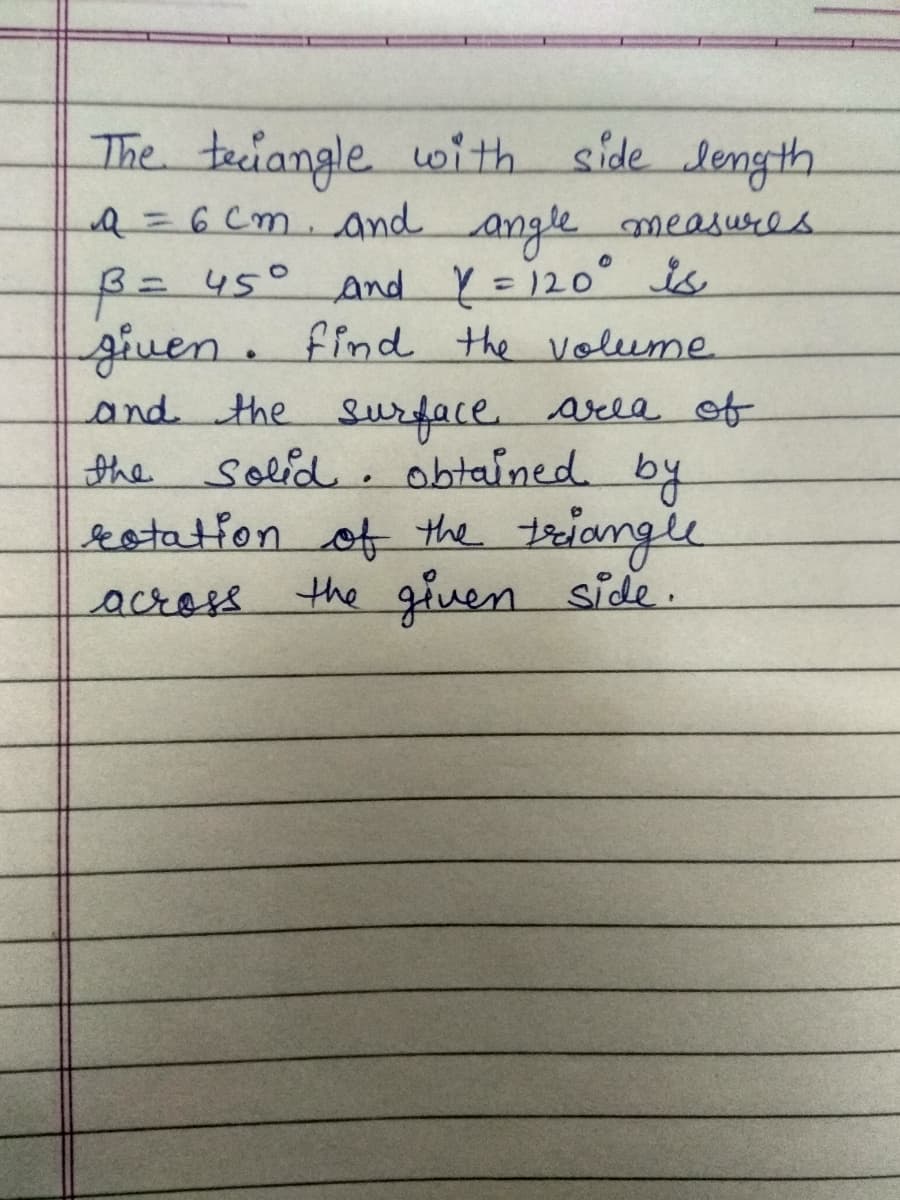 The triangle with side length
a = 6 cm. and angle measures
β = 45° and γ = 120° is
given. find the volume
and the surface area of
the solid. obtained by
rotation of the triangle
across the given side.